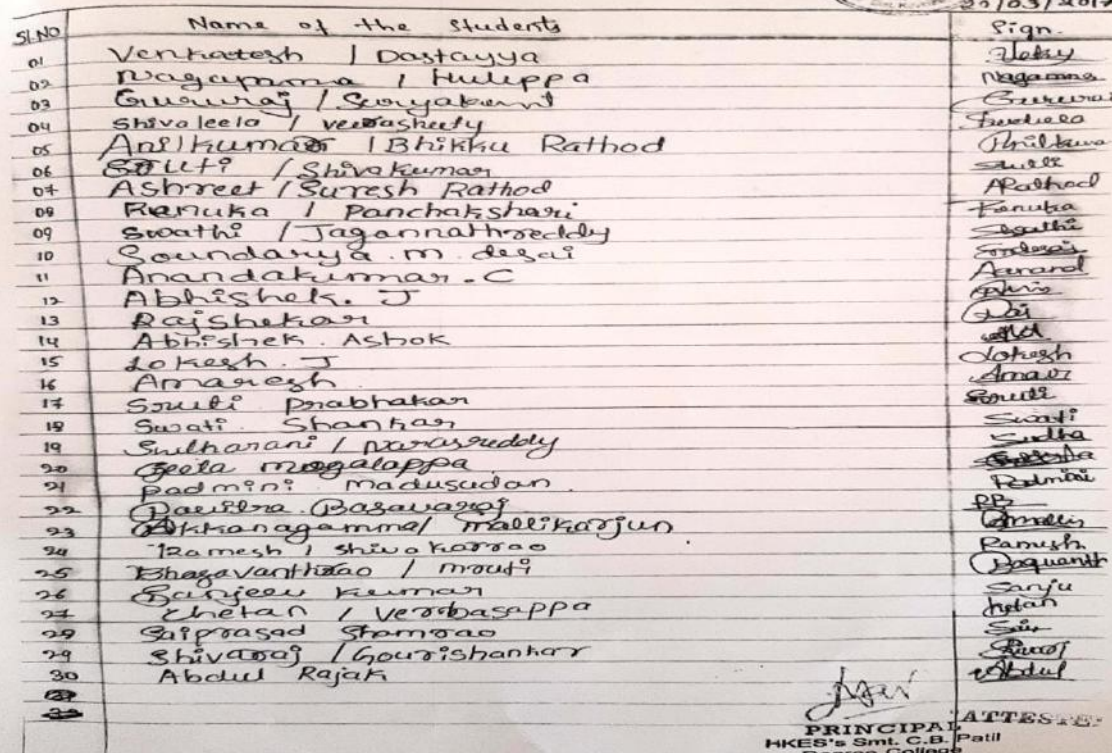 22/03/2017
Sl.No Name of the Students Sign.
01 Venkatesh / Dastayya Veky
02 Nagapamma / Huleppa Nagamma
03 Gururaj / Suryakant Gururaj
04 Shivaleela / veerashetty
05 Anilkumar / Bhikku Rathod Anilkuma
06 Sruti / Shivakumar Sruti
07 Ashreet / Suresh Rathod ARathod
08 Renuka / Panchakshari Renuka
09 Swathi / Jagannathreddy Swathi
10 Soundarya.m.desai
11 Anandakumar.C Aanand
12 Abhishek. J
13 Rajshekar Raj
14 Abhishek. Ashok
15 Lokesh. J Lokesh
16 Amaresh. Amar
17 Sruti Prabhakar Sruti
18 Swati. Shankar Swati
19 Sudharani / Narasreddy Sudha
20 Geeta mogalappa
21 Padmini madusudan. Padmini
22 Pavitra. Basavaraj PB
23 Akkanagamma/ mallikarjun
24 Ramesh / Shivakarrao Ramesh
25 Bhagavanthrao / mouti Baguanth
26 Sanjeev Kumar Sanju
27 Chetan / Verbasappa hetan
28 Saiprasad Shamrao Sai
29 Shivaraj / Gourishankar Shivraj
30 Abdul Rajak Abdul
PRINCIPAL ATTESTED
HKES's Smt. C.B. Patil
Degree College